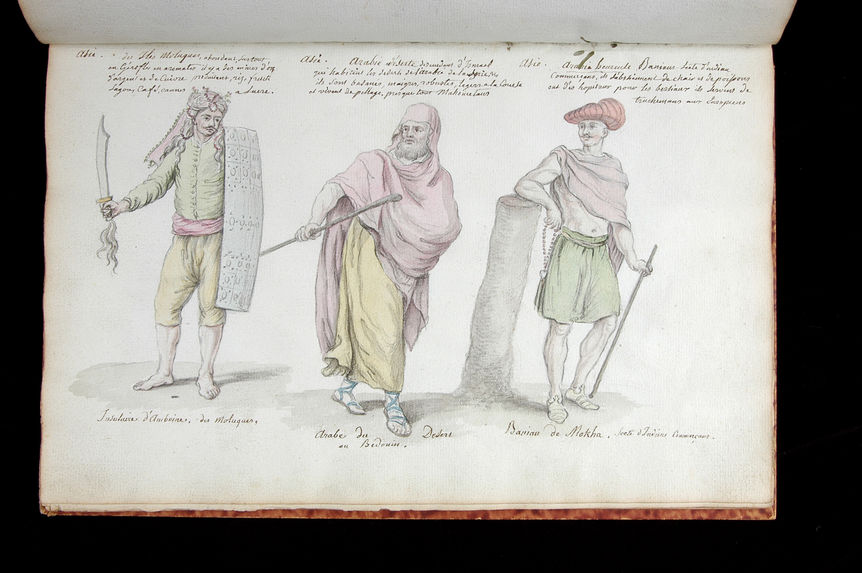 Asie. des Isles Moluques, abondent, surtout
en Gérofles en aromates il y a des mines d'or
d'argent et de Cuivre
Sagou, Café, cannes a Sucre.
Asie. Arabie déserte descendans d'Ismael
qui habitent les déserts de l'arabie de la Syrie,
ils sont basanés, maigres, robustes, legers a la Course
et vivent de pillage, presque tous Mahometans
Asie. Arabie heureuse Banians Secte d'indiens
Commerçans, de chair et de poissons
ont des hopitaux pour les bestiaux ils servent de
truchemans aux Européens
Insulaire d'Amboine, des Moluques.
Arabe du Desert
ou Bedouin.
Banian de Mokha. Secte d'Indiens Commerçans.